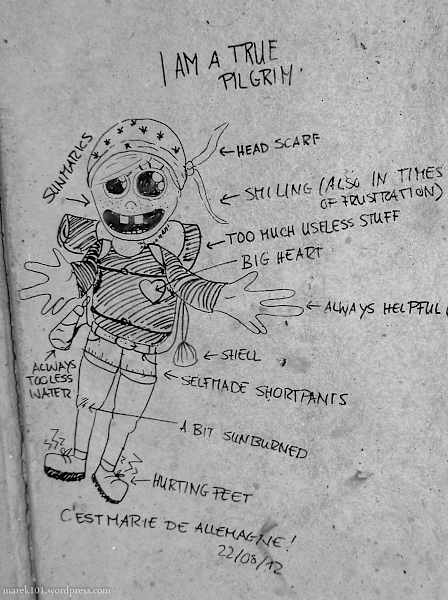 I AM A TRUE
PILGRIM.
SUNMARKS
HEAD SCARF
SMILING (ALSO IN TIMES
OF FRUSTRATION)
TOO MUCH USELESS STUFF
BIG HEART
ALWAYS HELPFUL
SHELL
ALWAYS
TOO LESS
WATER
SELFMADE SHORTPANTS
A BIT SUNBURNED
HURTING FEET
C'EST MARIE DE ALLEMAGNE!
22/08/12
marek101.wordpress.com